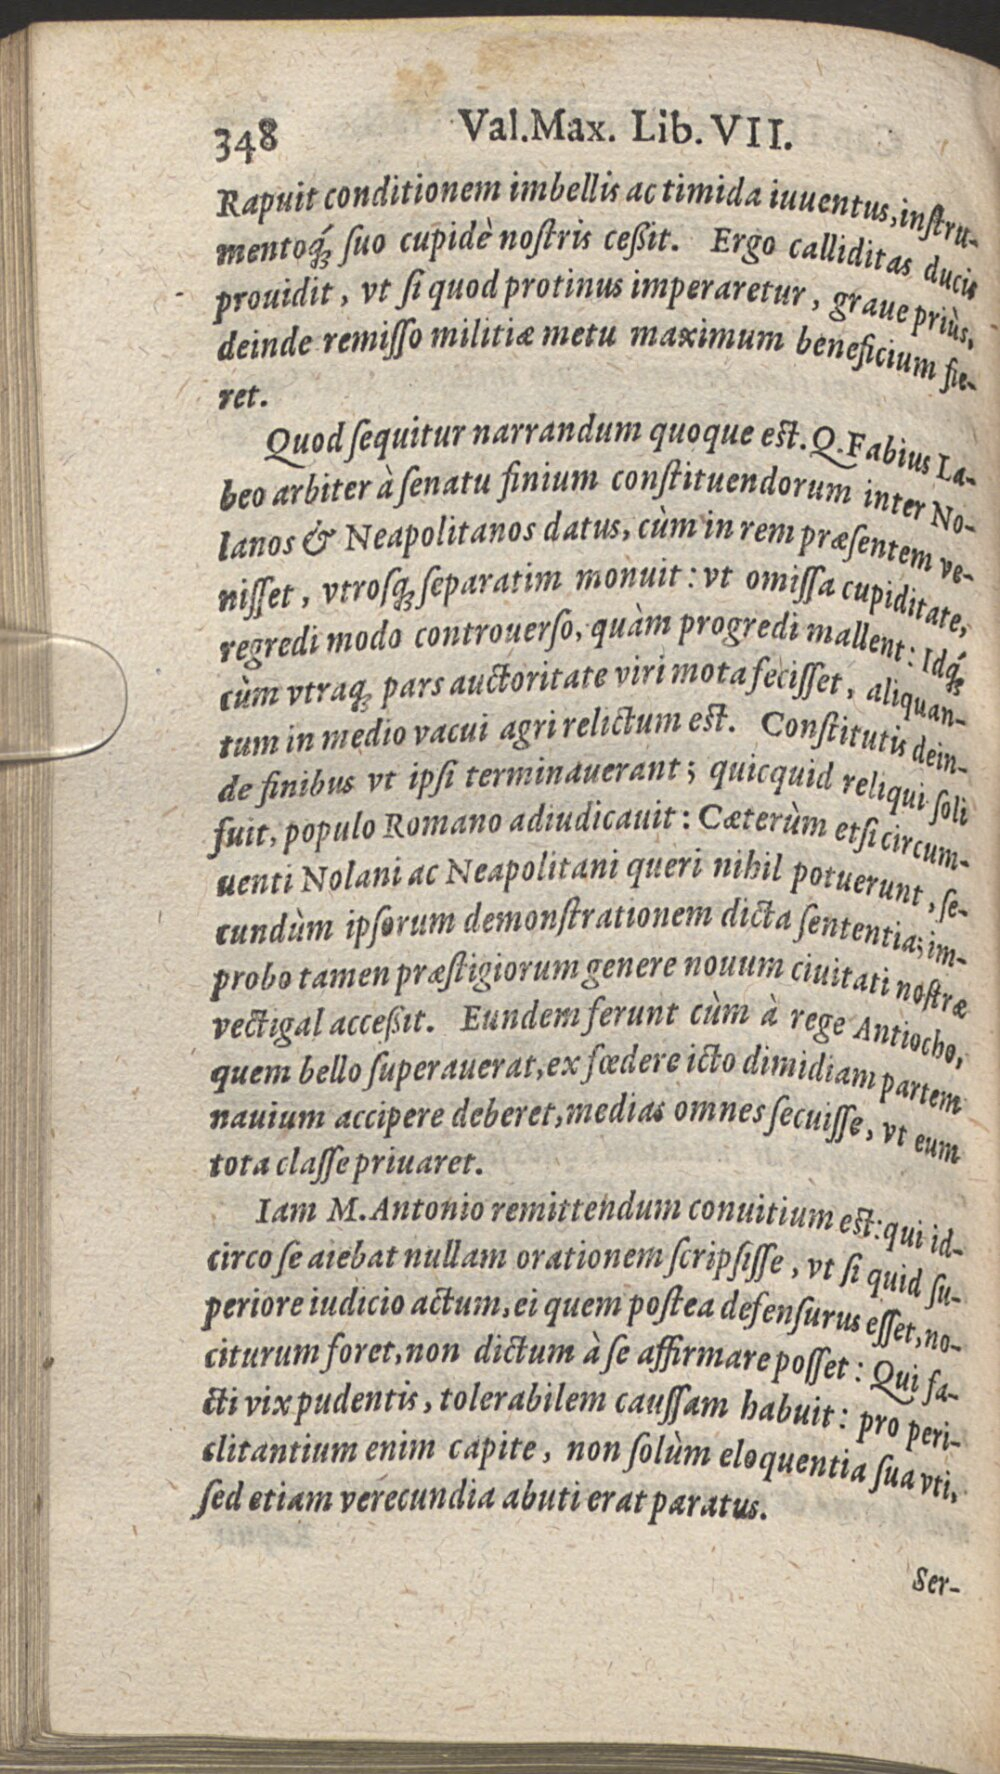 348 Val.Max. Lib. VII.
Rapuit conditionem imbellis ac timida iuuentus, inſtru-
mentoq́; ſuo cupidè noſtris ceßit. Ergo calliditas ducis
prouidit, vt ſi quod protinus imperaretur, graue priùs,
deinde remiſſo militiæ metu maximum beneficium fie-
ret.
Quod ſequitur narrandum quoque eſt. Q. Fabius La-
beo arbiter à ſenatu finium conſtituendorum inter No-
lanos & Neapolitanos datus, cùm in rem præſentem ve-
niſſet, vtroſq; ſeparatim monuit: vt omiſſa cupiditate,
regredi modo controuerſo, quàm progredi mallent: Idq́;
cùm vtraq; pars auctoritate viri mota feciſſet, aliquan-
tum in medio vacui agri relictum eſt. Conſtitutis dein-
de finibus vt ipſi terminauerant; quicquid reliqui ſoli
fuit, populo Romano adiudicauit: Cæterùm etſi circum-
uenti Nolani ac Neapolitani queri nihil potuerunt, ſe-
cundùm ipſorum demonſtrationem dicta ſententia; im-
probo tamen præſtigiorum genere nouum ciuitati noſtræ
vectigal acceßit. Eundem ferunt cùm à rege Antiocho,
quem bello ſuperauerat, ex fœdere icto dimidiam partem
nauium accipere deberet, medias omnes ſecuiſſe, vt eum
tota claſſe priuaret.
Iam M. Antonio remittendum conuitium eſt: qui id-
circo ſe aiebat nullam orationem ſcripſiſſe, vt ſi quid ſu-
periore iudicio actum, ei quem poſtea defenſurus eſſet, no-
citurum foret, non dictum à ſe affirmare poſſet: Qui fa-
cti vix pudentis, tolerabilem cauſſam habuit: pro peri-
clitantium enim capite, non ſolùm eloquentia ſua vti,
ſed etiam verecundia abuti erat paratus.
Ser-